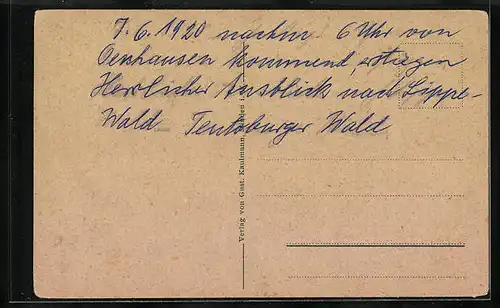 7. 6. 1920 nachm 6 Uhr von
Oenhausen kommend, erstiegen
Herrlicher Ausblick nach Lippe-
Wald Teutoburger Wald
Verlag von Gust. Kaufmann, Minden i.